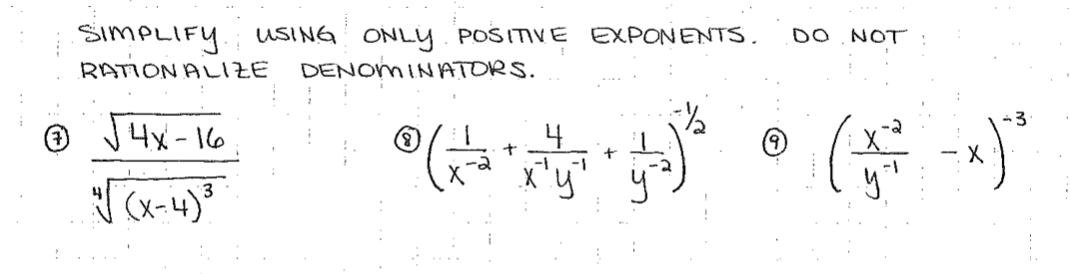 SIMPLIFY USING ONLY POSITIVE EXPONENTS. DO NOT
RATIONALIZE DENOMINATORS.
⑦ √(4x-16) / ⁴√((x-4)³)
⑧ (1/x⁻² + 4/(x⁻¹y⁻¹) + 1/y⁻²)^(-1/2)
⑨ (x⁻²/y⁻¹ - x)⁻³